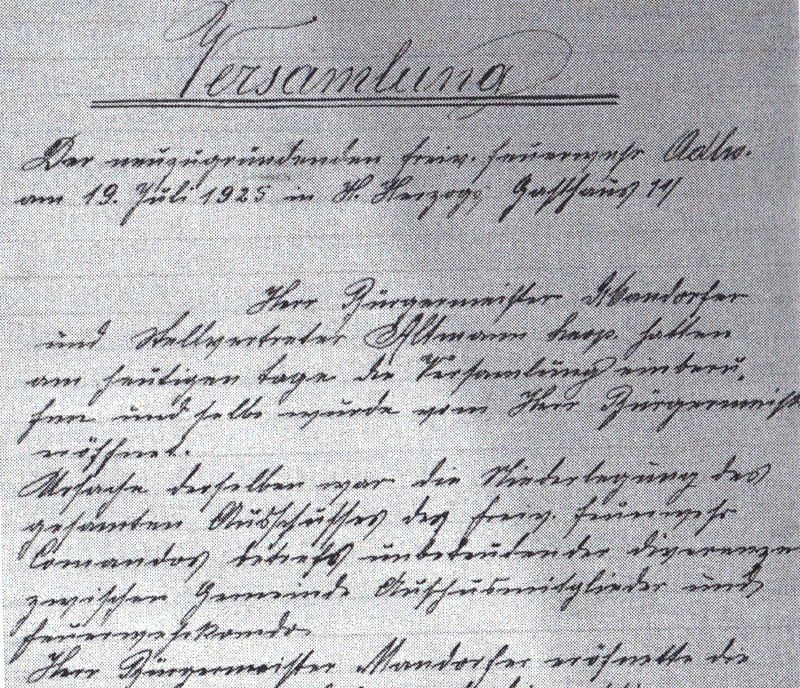 Versamlung
Der neuzugründenden freiw. Feuerwehr Adlw.
am 19. Juli 1925 in H. Herzogs Gasthaus
Herr Bürgermeister Mandorfer
und Stellvertreter Altmann Kasp. hatten
am heutigen tage die Versamlung einberu,
fen und selbe wurde vom Herr Bürgermeist
eröffnet.
Ursache derselben war die Niederlegung des
gesamten Ausschusses der freiw. Feurwehr
Comandos betrefs unbedeudender diverenzen
zwischen Gemeinde Auschusmitglieder und
Feuerwehrkomdo
Herr Bürgermeister Mandorfer eröfnette die